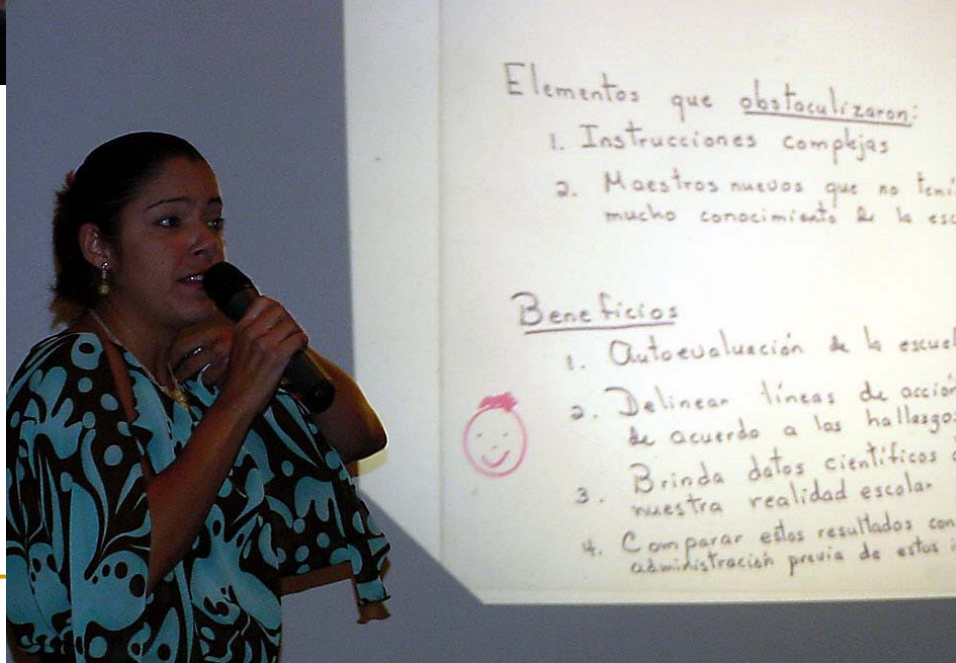 Elementos que obstaculizaron:
1. Instrucciones complejas
2. Maestros nuevos que no tení
mucho conocimiento de la esc
Beneficios
1. Autoevaluación de la escuel
2. Delinear líneas de acción
de acuerdo a los hallasgos
3. Brinda datos científicos d
nuestra realidad escolar
4. Comparar estos resultados con
administración previa de estos i